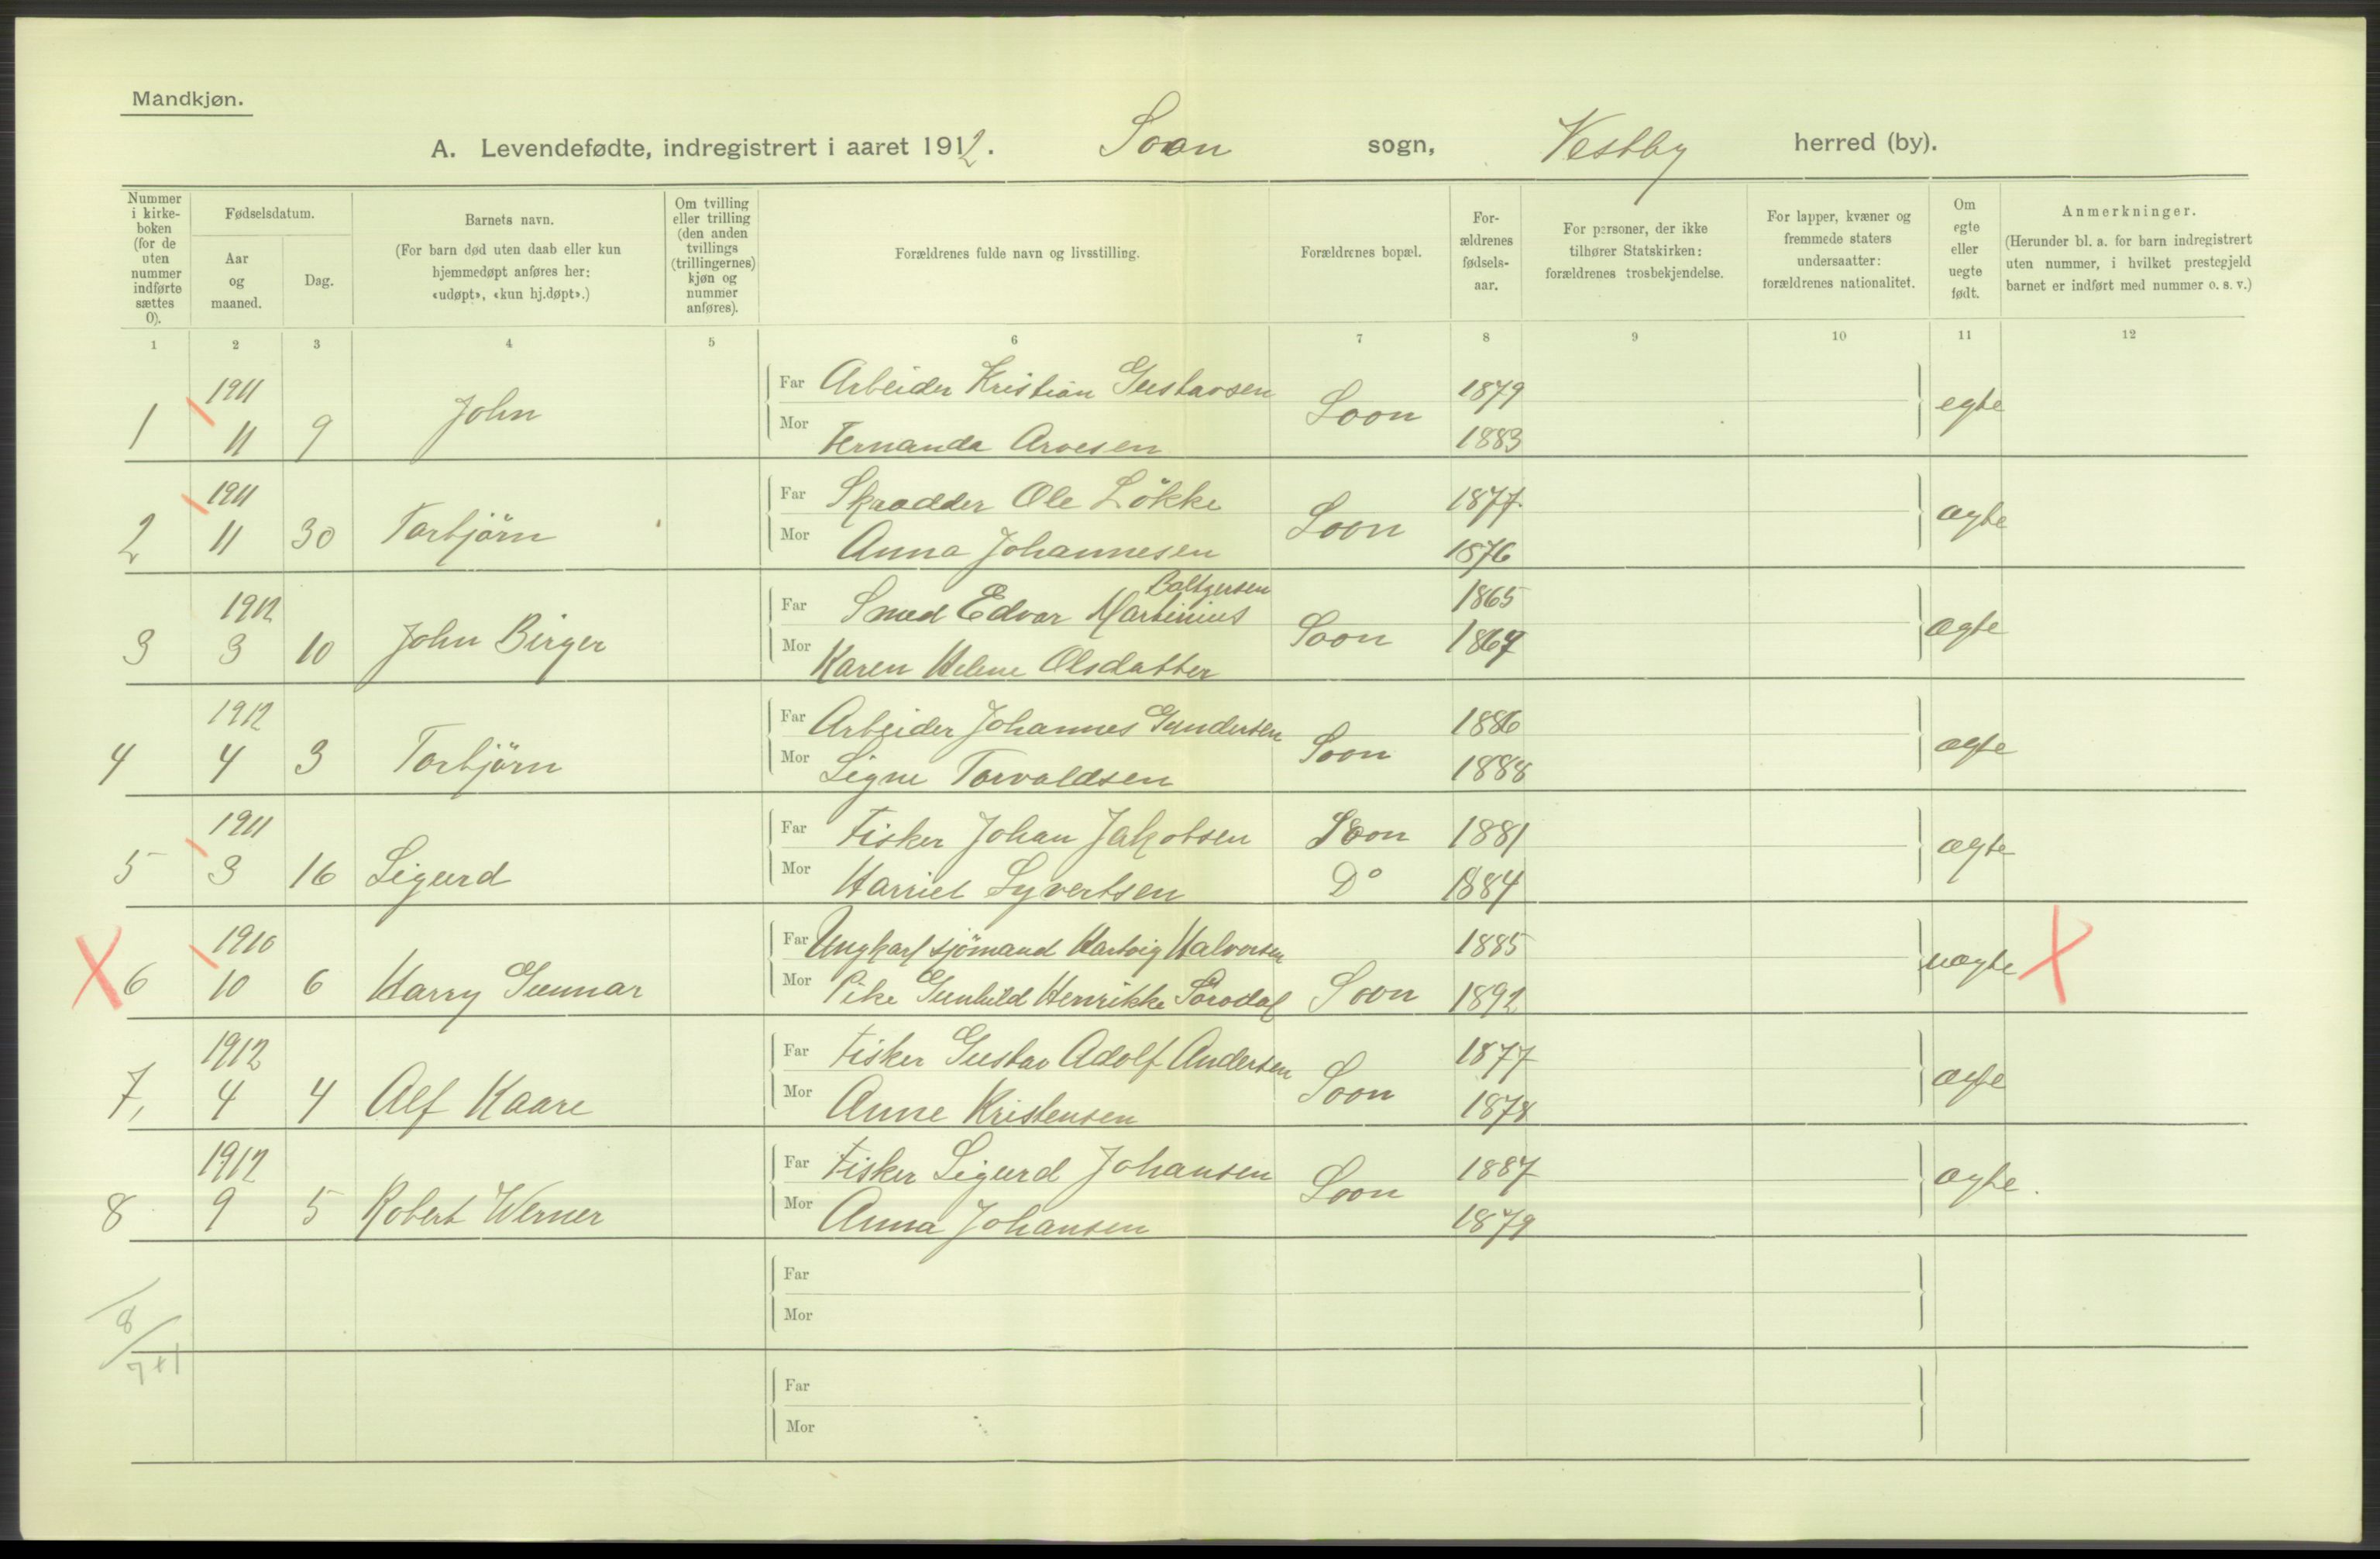 Mandkjøn.
A. Levendefødte, indregistrert i aaret 1912. Soon sogn, Vestby herred (by).
Nummer i kirke-boken (for de uten nummer indførte sættes 0).
Fødselsdatum.
Aar og maaned.
Dag.
Barnets navn.
(For barn død uten daab eller kun hjemmedøpt anføres her: «udøpt», «kun hj.døpt».)
Om tvilling eller trilling (den anden tvillings (trillingernes) kjøn og nummer anføres).
Forældrenes fulde navn og livsstilling.
Forældrenes bopæl.
For-ældrenes fødsels-aar.
For personer, der ikke tilhører Statskirken: forældrenes trosbekjendelse.
For lapper, kvæner og fremmede staters undersaatter: forældrenes nationalitet.
Om egte eller uegte født.
Anmerkninger.
(Herunder bl. a. for barn indregistrert uten nummer, i hvilket prestegjeld barnet er indført med nummer o. s. v.)
1 2 3 4 5 6 7 8 9 10 11 12
1 1911 11 9 John
Far Arbeider Kristian Gustavsen Soon 1879 egte
Mor Fernanda Arvesen 1883
2 1911 11 30 Torbjörn
Far Skrædder Ole Lökke Soon 1877 ægte
Mor Anna Johannesen 1876
3 1912 3 10 John Birger
Far Smed Edvar Martinius Baltzersen Soon 1865 ægte
Mor Karen Helene Olsdatter
4 1912 4 3 Torbjörn
Far Arbeider Johannes Gundersen Soon 1886 ægte
Mor Signe Torvaldsen 1888
5 1911 3 16 Sigurd
Far Fisker Johan Jakobsen Soon 1881 ægte
Mor Harriet Syvertsen Do 1884
X 6 1910 10 6 Harry Gunnar
Far Ungkarl sjömand Hartvig Halvorsen 1885 uægte X
Mor Pike Gunhild Henrikke Soon 1892
7, 1912 4 4 Alf Kaare
Far Fisker Gustav Adolf Andersen Soon 1877 ægte
Mor Anne Kristensen 1878
8 1912 9 5 Robert Werner
Far Fisker Sigurd Johansen Soon 1887 ægte.
Mor Anna Johansen 1879
Far
Mor
8
7+1
Far
Mor